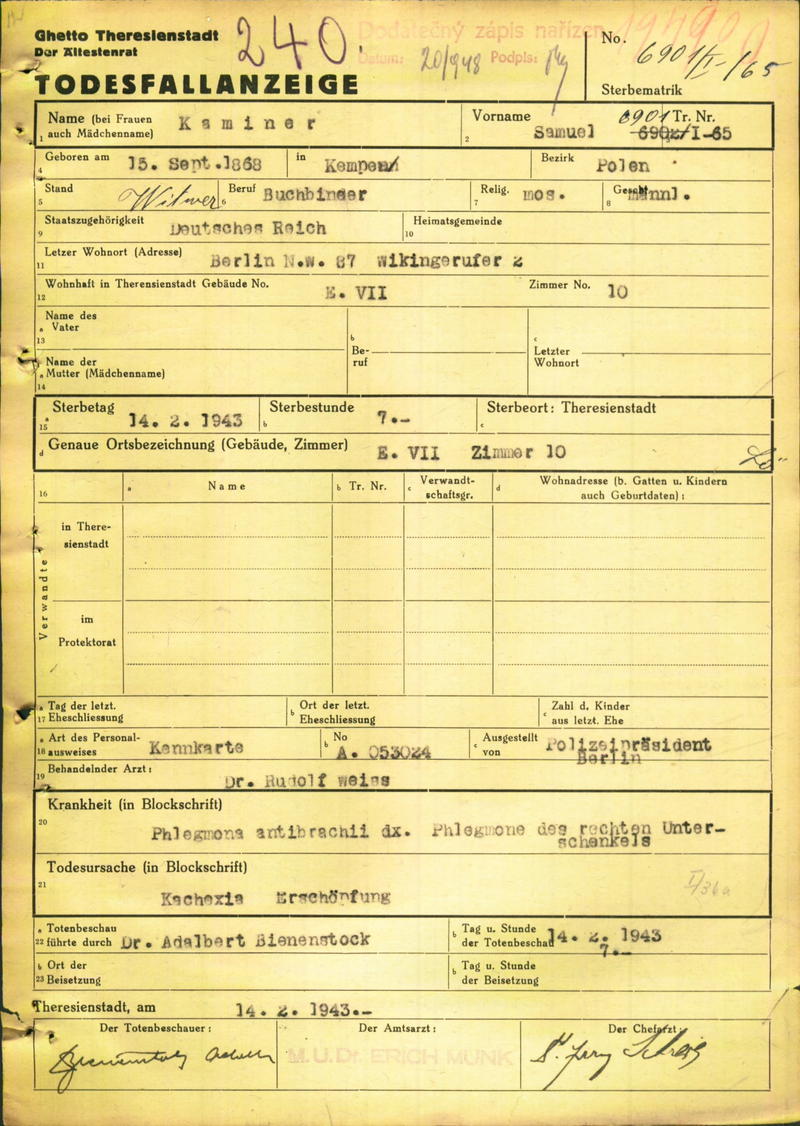 Ghetto Theresienstadt
Der Ältestenrat
240
Dodatečný zápis nařízen
Datum: 20/948 Podpis:
No. 6901/I-/65
TODESFALLANZEIGE
Sterbematrik
Name (bei Frauen auch Mädchenname) Kaminer
1
Vorname Samuel
2
6901 Tr. Nr.
I-65
4 Geboren am 15. Sept.1868 in Kempen Bezirk Polen
5 Stand Witwer 6 Beruf Buchbinder 7 Relig. mos. 8 Geschl. männl.
9 Staatszugehörigkeit Deutsches Reich 10 Heimatsgemeinde
11 Letzer Wohnort (Adresse) Berlin N.W. 87 Wikingerufer 2
12 Wohnhaft in Therensienstadt Gebäude No. E. VII Zimmer No. 10
13 a Name des Vater
14 a Name der Mutter (Mädchenname)
b Be-ruf
c Letzter Wohnort
15 a Sterbetag 14. 2. 1943 b Sterbestunde 7.- c Sterbeort: Theresienstadt
d Genaue Ortsbezeichnung (Gebäude, Zimmer) E. VII Zimmer 10
16 a Name b Tr. Nr. c Verwandt-schaftsgr. d Wohnadresse (b. Gatten u. Kindern auch Geburtdaten):
Verwandte
in There-
sienstadt
im
Protektorat
17 a Tag der letzt. Eheschliessung b Ort der letzt. Eheschliessung c Zahl d. Kinder aus letzt. Ehe
18 a Art des Personal-ausweises Kennkarte b No A. 053024 c Ausgestellt von Polizeipräsident Berlin
19 Behandelnder Arzt: Dr. Rudolf Weiss
Krankheit (in Blockschrift)
20
Phlegmona antibrachii dx. Phlegmone des rechten Unter-
schenkels
Todesursache (in Blockschrift)
21
Kachexia Erschöpfung
I/36a
22 a Totenbeschau führte durch Dr. Adalbert Bienenstock b Tag u. Stunde der Totenbeschau 14. 2. 1943
7.-
23 b Ort der Beisetzung b Tag u. Stunde der Beisetzung
Theresienstadt, am 14. 2. 1943.-
Der Totenbeschauer: Der Amtsarzt: Der Chefarzt:
M.U.Dr. ERICH MUNK